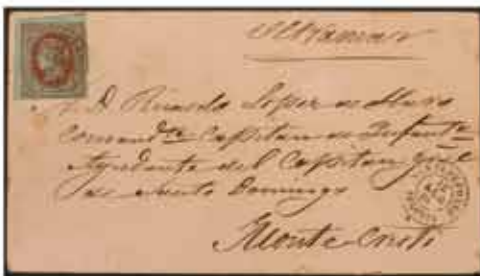 Ultramar
D Ricardo Lopez de Haro
Comandte Capitan de Infanta
Ayudante del Capitan Gral
de Santo Domingo
Monte-Cristi